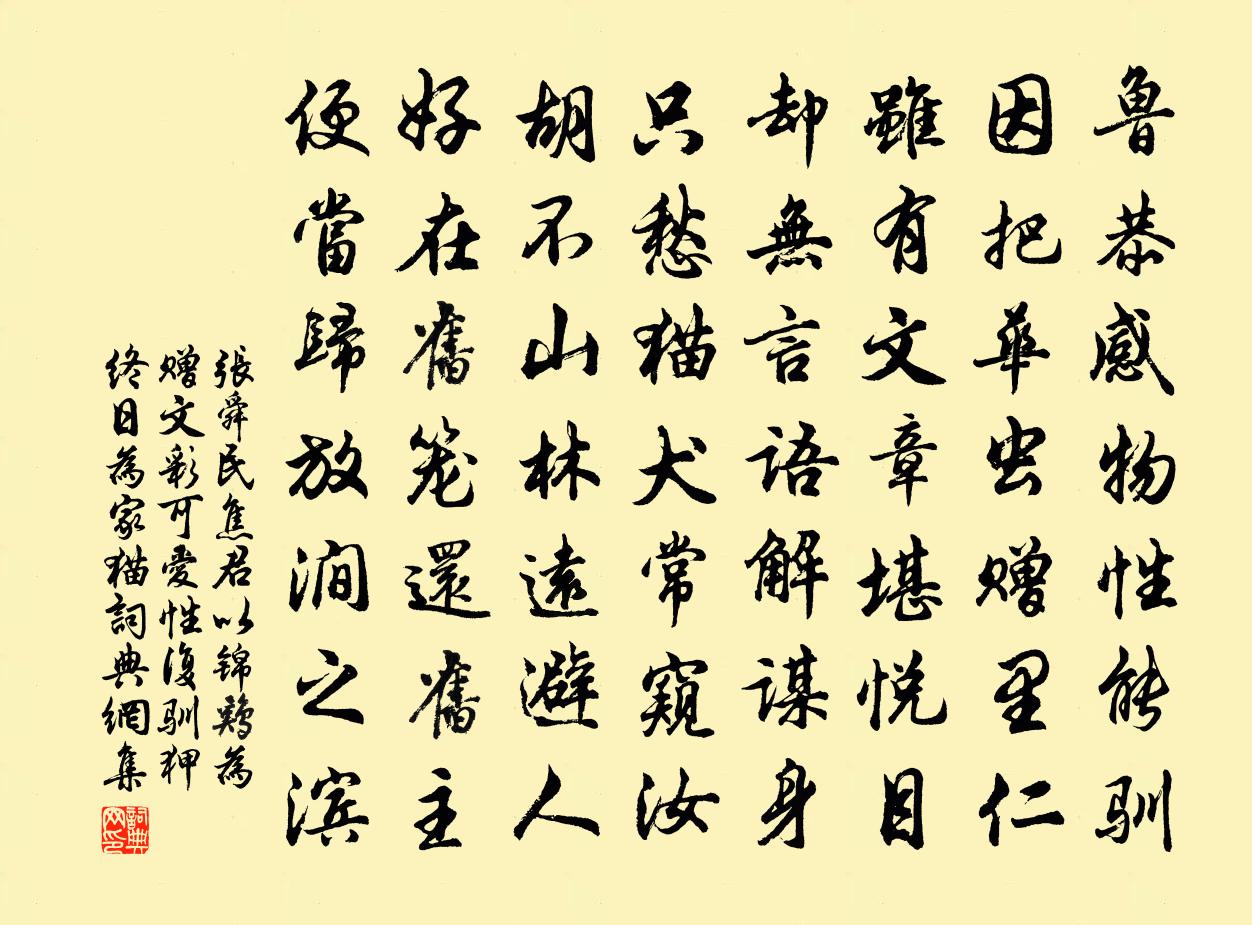 魯恭感物性能馴
因把華虫赠里仁
雖有文章堪悦目
却無言語解謀身
只愁猫犬常窺汝
胡不山林遠避人
好在舊笼還舊主
便當歸放澗之滨
張舜民焦君以錦鷄為
赠文彩可愛性復馴狎
終日為家猫詞典網集
詞典
网印